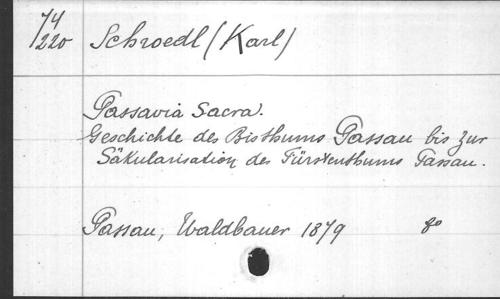 74/220
Schroedl (Karl)
Passavia Sacra.
Geschichte des Bisthums Passau bis zur
Säkularisation des Fürstenthums Passau.
Passau, Waldbauer 1879 8o